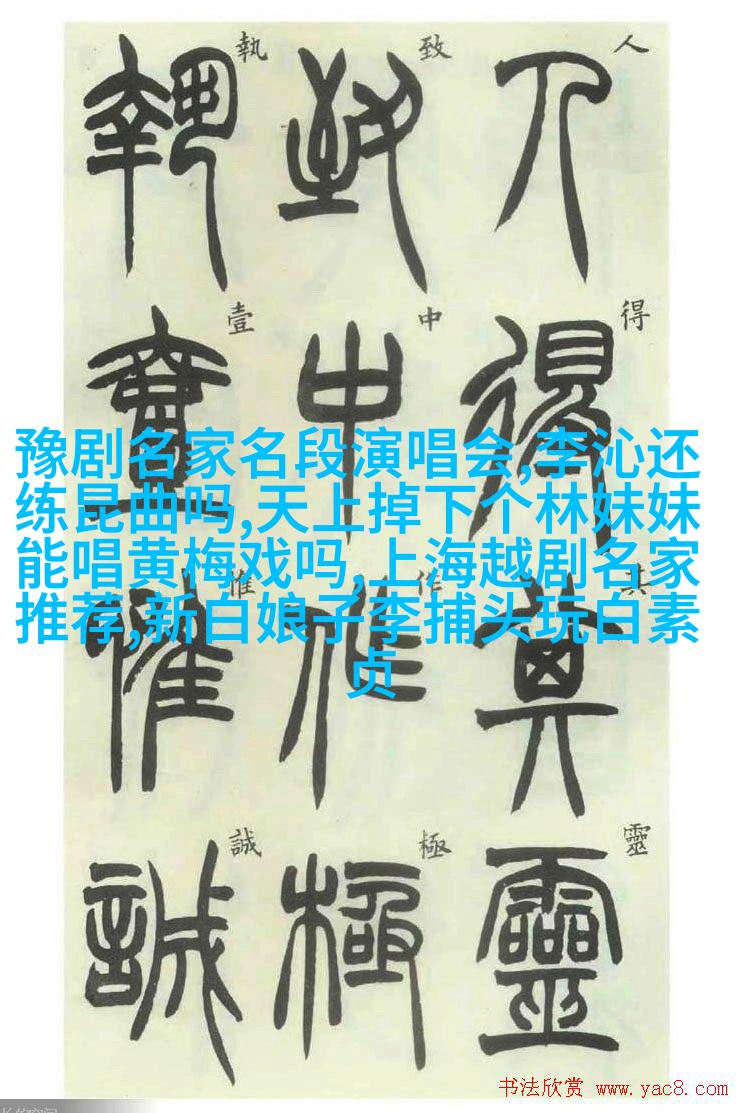 人得其靈
人得其靈
致中作極
致中作極
執壹惟誠
執壹惟誠
豫剧名家名段演唱会,李沁还
练昆曲吗,天上掉下个林妹妹
能唱黄梅戏吗,上海越剧名家
推荐,新白娘子李捕头玩白素
贞
书法欣赏 www.yac8.com